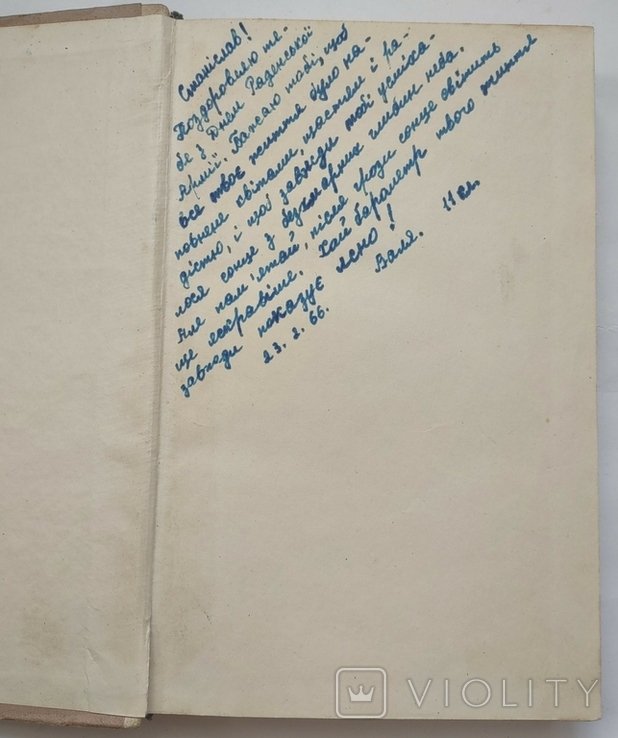 Станіслав!
Поздоровляю те-
бе з Днем Радянської
Армії. Бажаю тобі, щоб
все твоє життя було на-
повнене квітами, щастям і ра-
дістю, і щоб завжди тобі усміха-
лося сонце з безхмарних глибин неба.
Але пам'ятай, після грози сонце світить
ще яскравіше. Хай барометр твого життя
завжди показує ясно!
Валя. 11 кл.
23. 2. 66.
VIOLITY